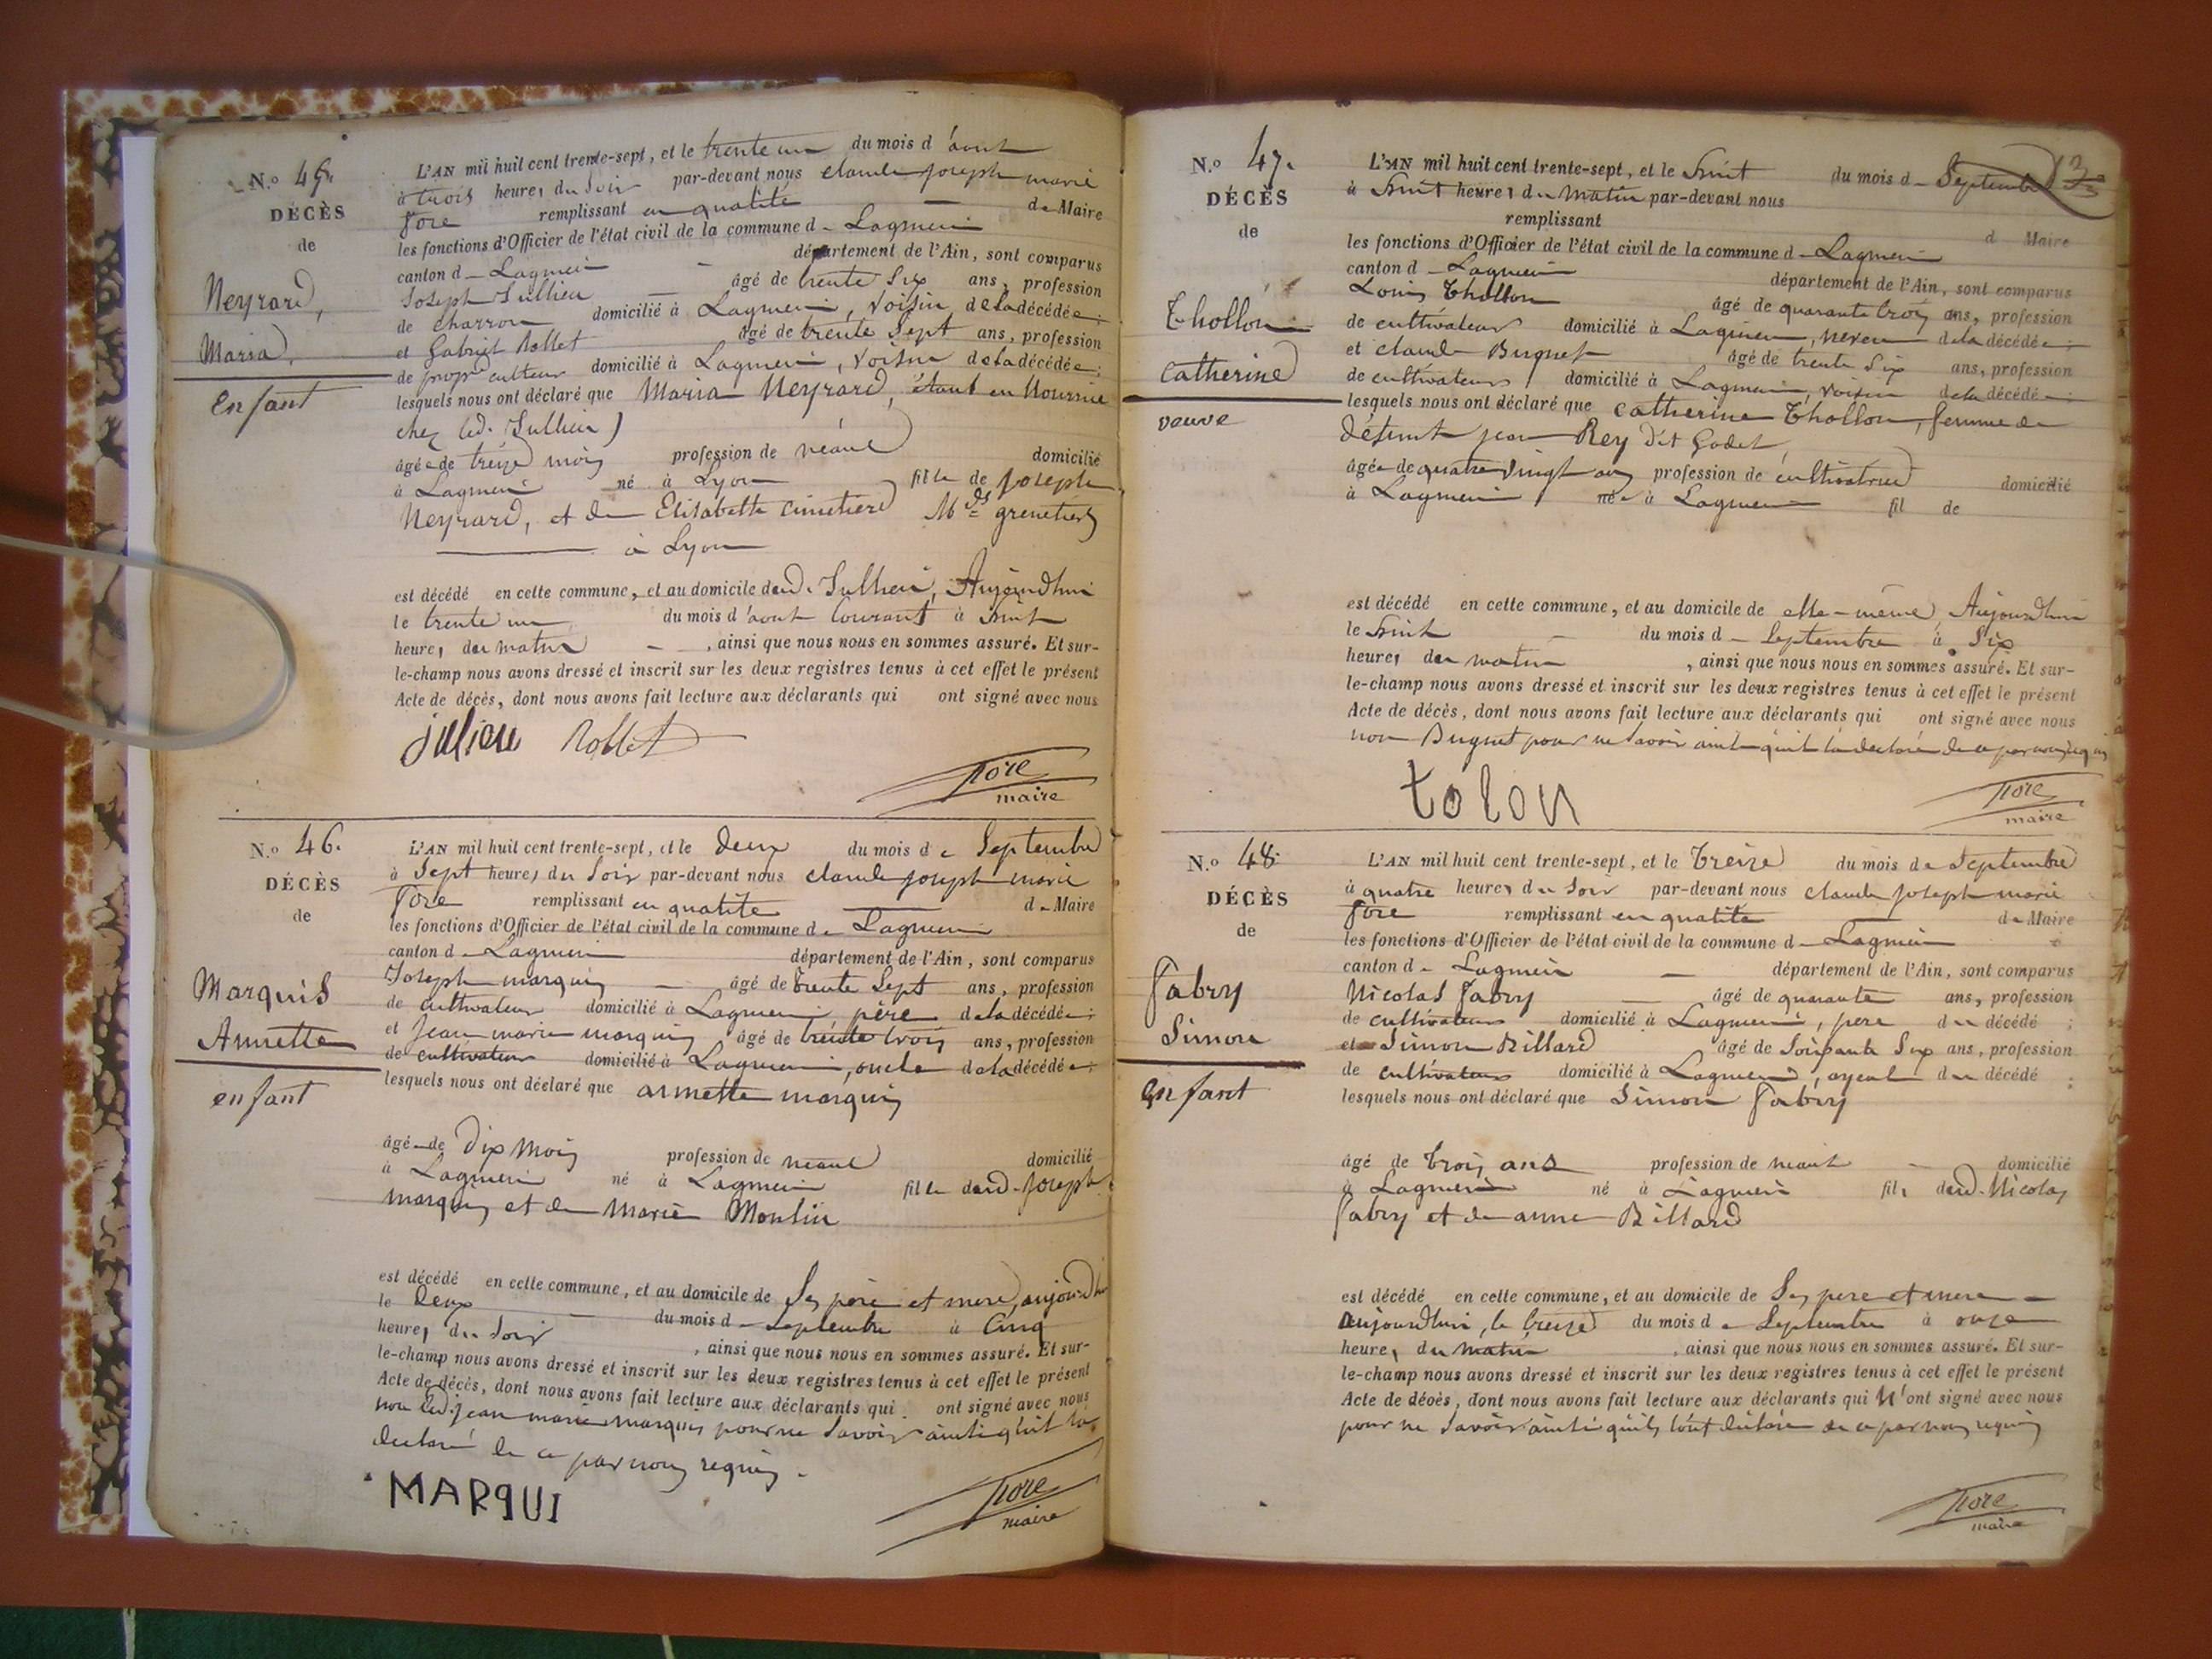 N.º 45.
DÉCÈS
de
Neyrard,
Maria,
enfant
L'AN mil huit cent trente-sept, et le trente un du mois d'aout
à trois heures du soir par-devant nous claude joseph marie
fore remplissant en qualité de Maire
les fonctions d'Officier de l'état civil de la commune de Lagnieu
canton de Lagnieu département de l'Ain, sont comparus
Joseph Jullien âgé de trente six ans, profession
de charron domicilié à Lagnieu, voisin de la décédée;
et Gabriel Rollet âgé de trente sept ans, profession
de propre culteur domicilié à Lagnieu, voisin de la décédée;
lesquels nous ont déclaré que Maria Neyrard, étant en nourrice
chez led. Jullien)
âgée de treize mois profession de néant domicilié
à Lagnieu né à Lyon fille de joseph
Neyrard, et de Elisabette cimetiere Mds grenetiers
à Lyon
est décédé en cette commune, et au domicile dud. Jullien, Aujourdhui
le trente un du mois d'aout courant à huit
heures du matin , ainsi que nous nous en sommes assuré. Et sur-
le-champ nous avons dressé et inscrit sur les deux registres tenus à cet effet le présent
Acte de décès, dont nous avons fait lecture aux déclarants qui ont signé avec nous
julien Rollet
fore
maire
N.º 46.
DÉCÈS
de
Marquis
Annette
enfant
L'AN mil huit cent trente-sept, et le deux du mois de Septembre
à Sept heures du soir par-devant nous claude joseph marie
fore remplissant en qualité de Maire
les fonctions d'Officier de l'état civil de la commune de Lagnieu
canton de Lagnieu département de l'Ain, sont comparus
Joseph marquis âgé de trente sept ans, profession
de cultivateur domicilié à Lagnieu père de la décédée;
et Jean marie marquis âgé de trente trois ans, profession
de cultivateur domicilié à Lagnieu, oncle de la décédée;
lesquels nous ont déclaré que annette marquis
âgée de dix mois profession de néant domicilié
à Lagnieu né à Lagnieu fille dud. joseph
marquis et de marie Moulin
est décédé en cette commune, et au domicile de ses père et mere, aujourdhui
le deux du mois de septembre à cinq
heures du soir , ainsi que nous nous en sommes assuré. Et sur-
le-champ nous avons dressé et inscrit sur les deux registres tenus à cet effet le présent
Acte de décès, dont nous avons fait lecture aux déclarants qui ont signé avec nous
non led. jean marie marquis pour ne savoir ainsi qu'il la
declaré de ce par nous requis.
MARQUI
fore
maire
N.º 47.
DÉCÈS
de
Thollon
catherine
veuve
L'AN mil huit cent trente-sept, et le huit du mois de Septembre
à huit heures du matin par-devant nous
remplissant d Maire
les fonctions d'Officier de l'état civil de la commune de Lagnieu
canton de Lagnieu département de l'Ain, sont comparus
Louis Thollon âgé de quarante trois ans, profession
de cultivateur domicilié à Lagnieu, neveu de la décédée;
et claude Bugnet âgé de trente six ans, profession
de cultivateur domicilié à Lagnieu, voisin de la décédée;
lesquels nous ont déclaré que catherine Thollon, femme de
défunt jean Rey dit Godet
âgée de quatre vingt ans profession de cultivatrice domicilié
à Lagnieu née à Lagnieu fil de
est décédé en cette commune, et au domicile de elle-même, Aujourdhui
le huit du mois de Septembre à six
heures du matin , ainsi que nous nous en sommes assuré. Et sur-
le-champ nous avons dressé et inscrit sur les deux registres tenus à cet effet le présent
Acte de décès, dont nous avons fait lecture aux déclarants qui ont signé avec nous
non Bugnet pour ne savoir ainsi qu'il la declaré de ce par nous requis
tolon
fore
maire
N.º 48.
DÉCÈS
de
Fabry
Simon
enfant
L'AN mil huit cent trente-sept, et le treize du mois de Septembre
à quatre heures du soir par-devant nous claude joseph marie
fore remplissant en qualité de Maire
les fonctions d'Officier de l'état civil de la commune de Lagnieu
canton de Lagnieu département de l'Ain, sont comparus
Nicolas Fabry âgé de quarante ans, profession
de cultivateur domicilié à Lagnieu, pere du décédé ;
et Simon Billard âgé de soixante six ans, profession
de cultivateur domicilié à Lagnieu, ayeul du décédé ;
lesquels nous ont déclaré que Simon Fabry
âgé de trois ans profession de neant domicilié
à Lagnieu né à Lagnieu fils dud. Nicolas
Fabry et de anne Billard
est décédé en cette commune, et au domicile de ses pere et mere
aujourdhui, le treize du mois de Septembre à onze
heures du matin , ainsi que nous nous en sommes assuré. Et sur-
le-champ nous avons dressé et inscrit sur les deux registres tenus à cet effet le présent
Acte de décès, dont nous avons fait lecture aux déclarants qui n'ont signé avec nous
pour ne savoir ainsi qu'ils l'ont déclaré de ce par nous requis
fore
maire